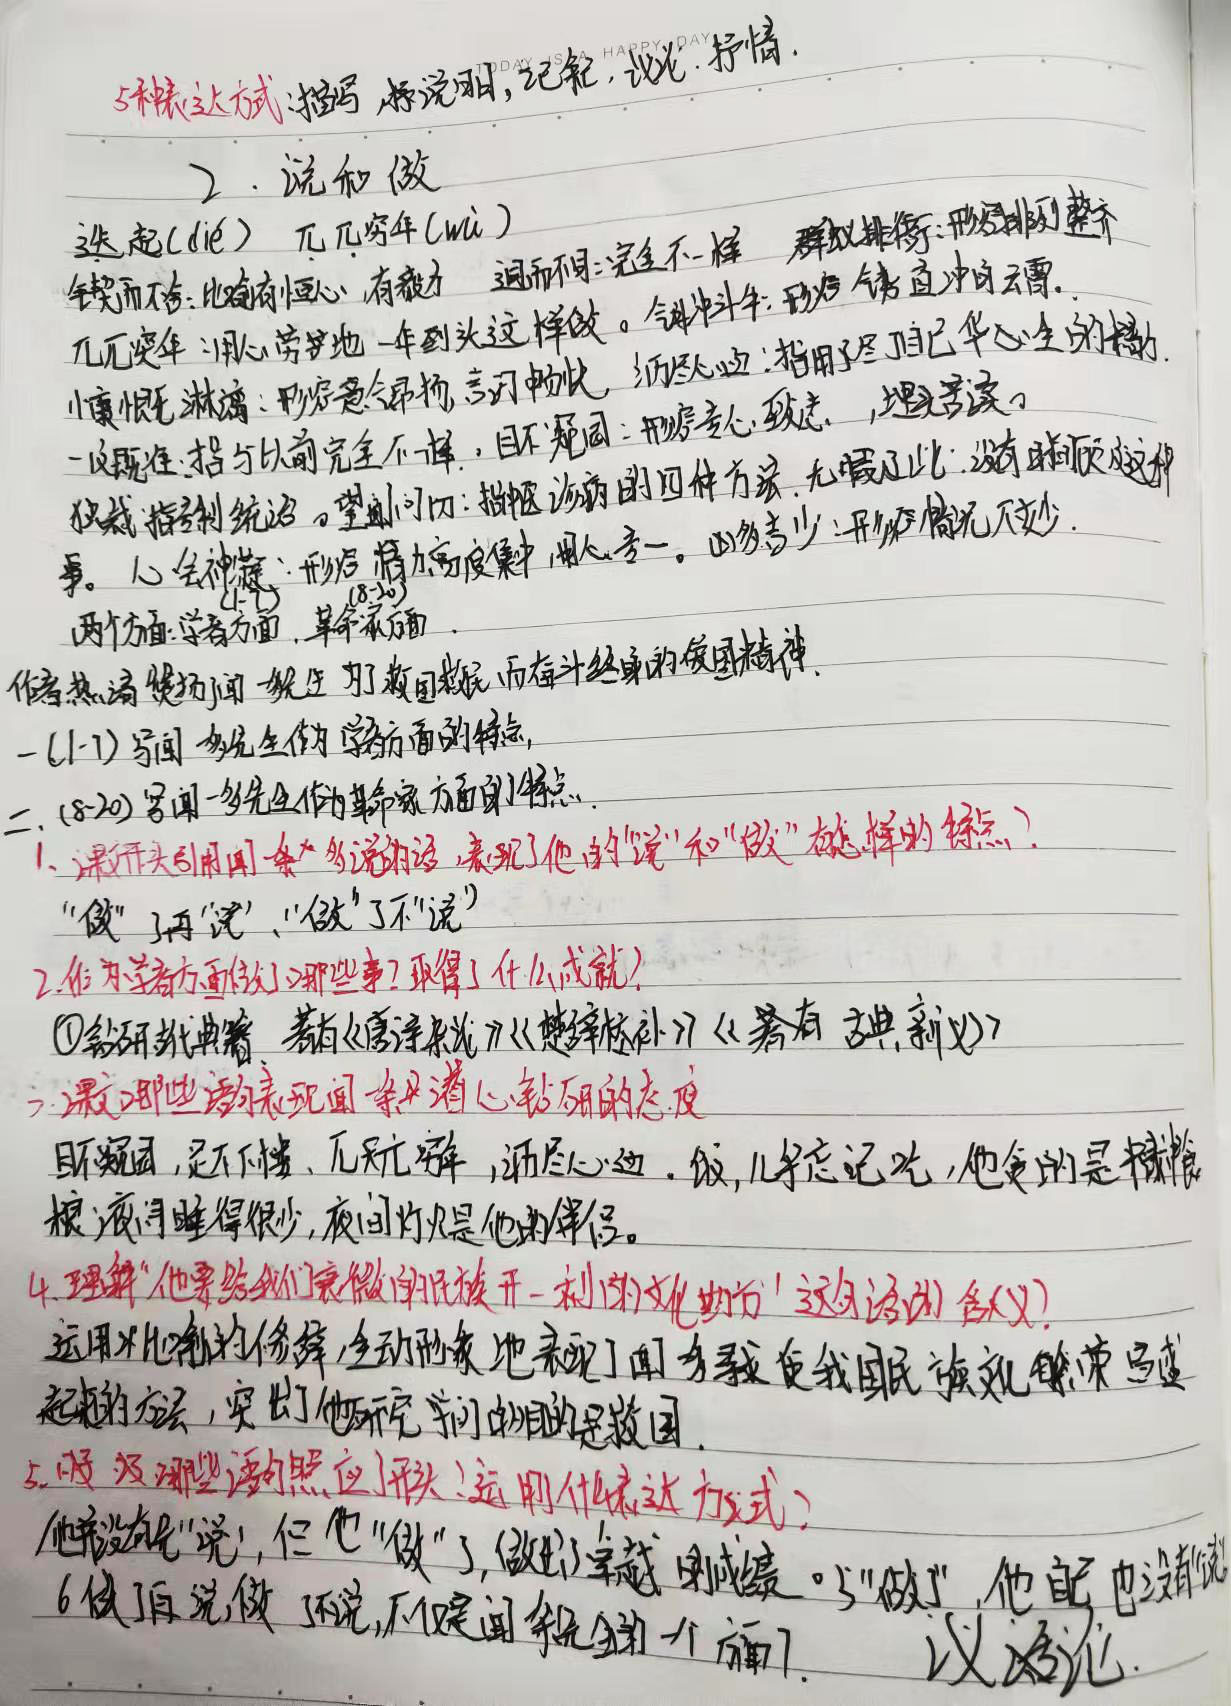 TODAY IS A HAPPY DAY
5种表达方式:描写,说明,记叙,议论.抒情.
2.说和做
迭起(dié) 兀兀穷年(wù)
锲而不舍:比喻有恒心,有毅力 迥而不同:完全不一样 群蚁排衙:形容排列整齐
兀兀穷年:用心劳苦地一年到头这样做。气冲斗牛:形容气势直冲自云霄.
慷慨淋漓:形容意气昂扬,言词畅快,沥尽心血:指用尽了自己全的精力.
一反既往:指与以前完全不一样.,目不窥园:形容专心致志,埋头苦读。
独裁:指专制统治。望闻问切:指中医诊病的四种方法.无暇及此:没有时间顾及这种
事。心会神凝:形容精力高度集中,用心专一。凶多吉少:形容情况不妙.
(1-7) (8-20)
两个方面:学者方面,革命家方面.
作者热情赞扬了闻一多先生为了救国救民而奋斗终身的爱国精神.
一(1-7)写闻一多先生作为学者方面的特点,
二.(8-20)写闻一多先生作为革命家方面的特点.
1、课文开头引用闻一多说的话,表现了他的"说"和"做"有怎样的特点?
"做"了再"说"、"做"了不"说"
2.作为学者方面做了哪些事?取得了什么成就?
①钻研古代典籍 著有《唐诗杂论》《楚辞校补》《著有 古典新义》
课文哪些语句表现闻一多潜心钻研的态度
目不窥园,足不下楼、兀兀穷年,沥尽心血.饭,几乎忘记吃,他贪的是精神食
粮;夜间睡得很少,夜间灯火是他的伴侣。
4.理解"他要给我们衰微的民族开一剂的文化药方"这句话的含义?
运用比喻的修辞,生动形象地表现了闻一多寻找使我国民族文化繁荣
起来的方法,突出了他研究学问的目的是救国.
5.段哪些语句照应了开头?运用什么表达方式?
他并没有先"说",但他"做"了,做出了卓越的成绩。"做"了,他自己也没有"说"
6做了再说,做了不说,不仅是闻一多先生的一个方面.
议论.